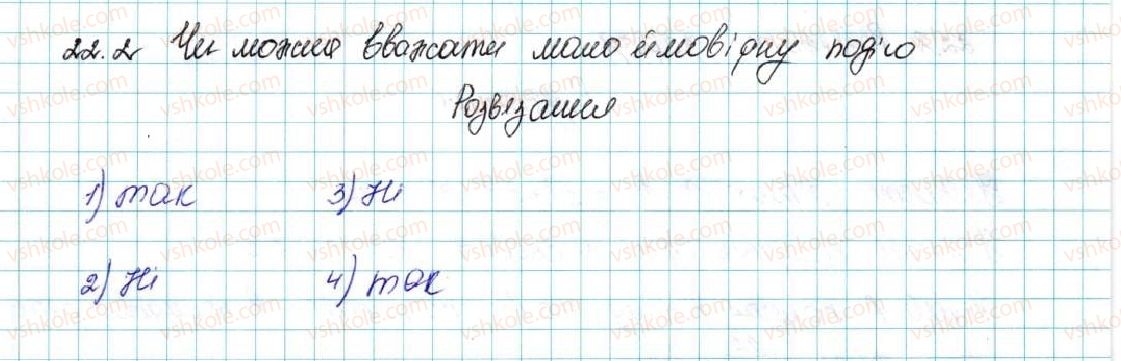 22.2 Чи можна вважати мало ймовірну подію
Розвязання
1) так 3) Ні
2) Ні 4) так